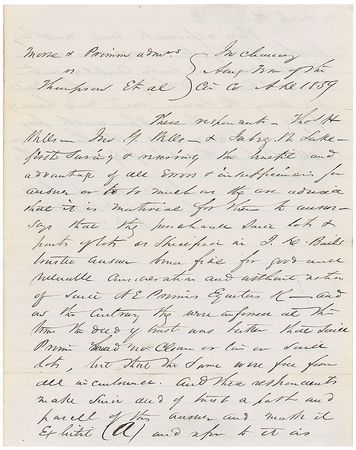 Morse & Primm admrs } In chancery
vs } Aug Term of the
Thompson Et al } Cir Co A.D. 1859
These respondents Thos H
Mills Jno G Mills & Lake
first saving & reserving the benefit and
advantage of all errors & insufficiencies for
answer or to so much as they are advised
that it is material for them to answer
says that they purchased said lots &
parts of lots as specified in
answer bona fide for good and
valuable consideration and without notice
of said Primm's Equities &c and
on the contrary they were informed at the
time the deed of trust was taken that said
Primm had no Claim or lien on said
lots, but that the same were free from
all incumbrance. And these respondents
make said deed of trust a part and
parcell of this answer and mark it
Exhibit (A) and refer to it as